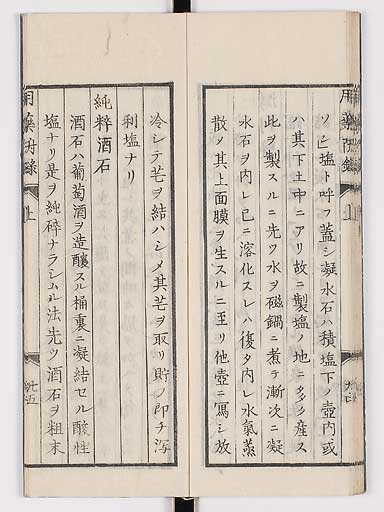 用藥附録 上
ソ𪜈塩ト呼フ蓋シ凝水石ハ積塩下ノ壺内或
ハ其下土中ニアリ故ニ製塩ノ地ニ多ク産ス
此ヲ製スルニ先ツ水ヲ磁鍋ニ煮テ漸次ニ凝
水石ヲ内レ已ニ溶化スレハ復タ内レ水氣蒸
散メ其上面膜ヲ生スルニ至リ他壺ニ冩シ放
冷シテ芒ヲ結ハシメ其芒ヲ取リ貯フ即チ瀉
利塩ナリ
純粹酒石
酒石ハ葡萄酒ヲ造釀スル桶裏ニ凝結セル酸性
塩ナリ是ヲ純碎ナラシムル法先ツ酒石ヲ粗末
用藥附録 上 廿五